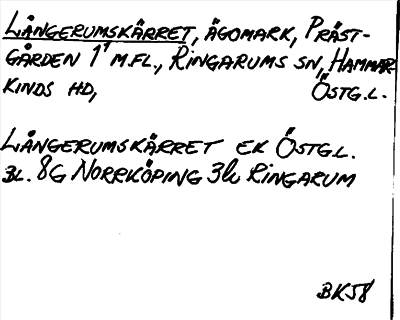 LÅNGERUMSKÄRRET, ÄGOMARK, PRÄST-
GÅRDEN 1¹ M.FL., RINGARUMS SN, HAMMAR-
KINDS HD, ÖSTG.L.
LÅNGERUMSKÄRRET EK ÖSTGL.
BL. 8G NORRKÖPING 3h RINGARUM
BK58